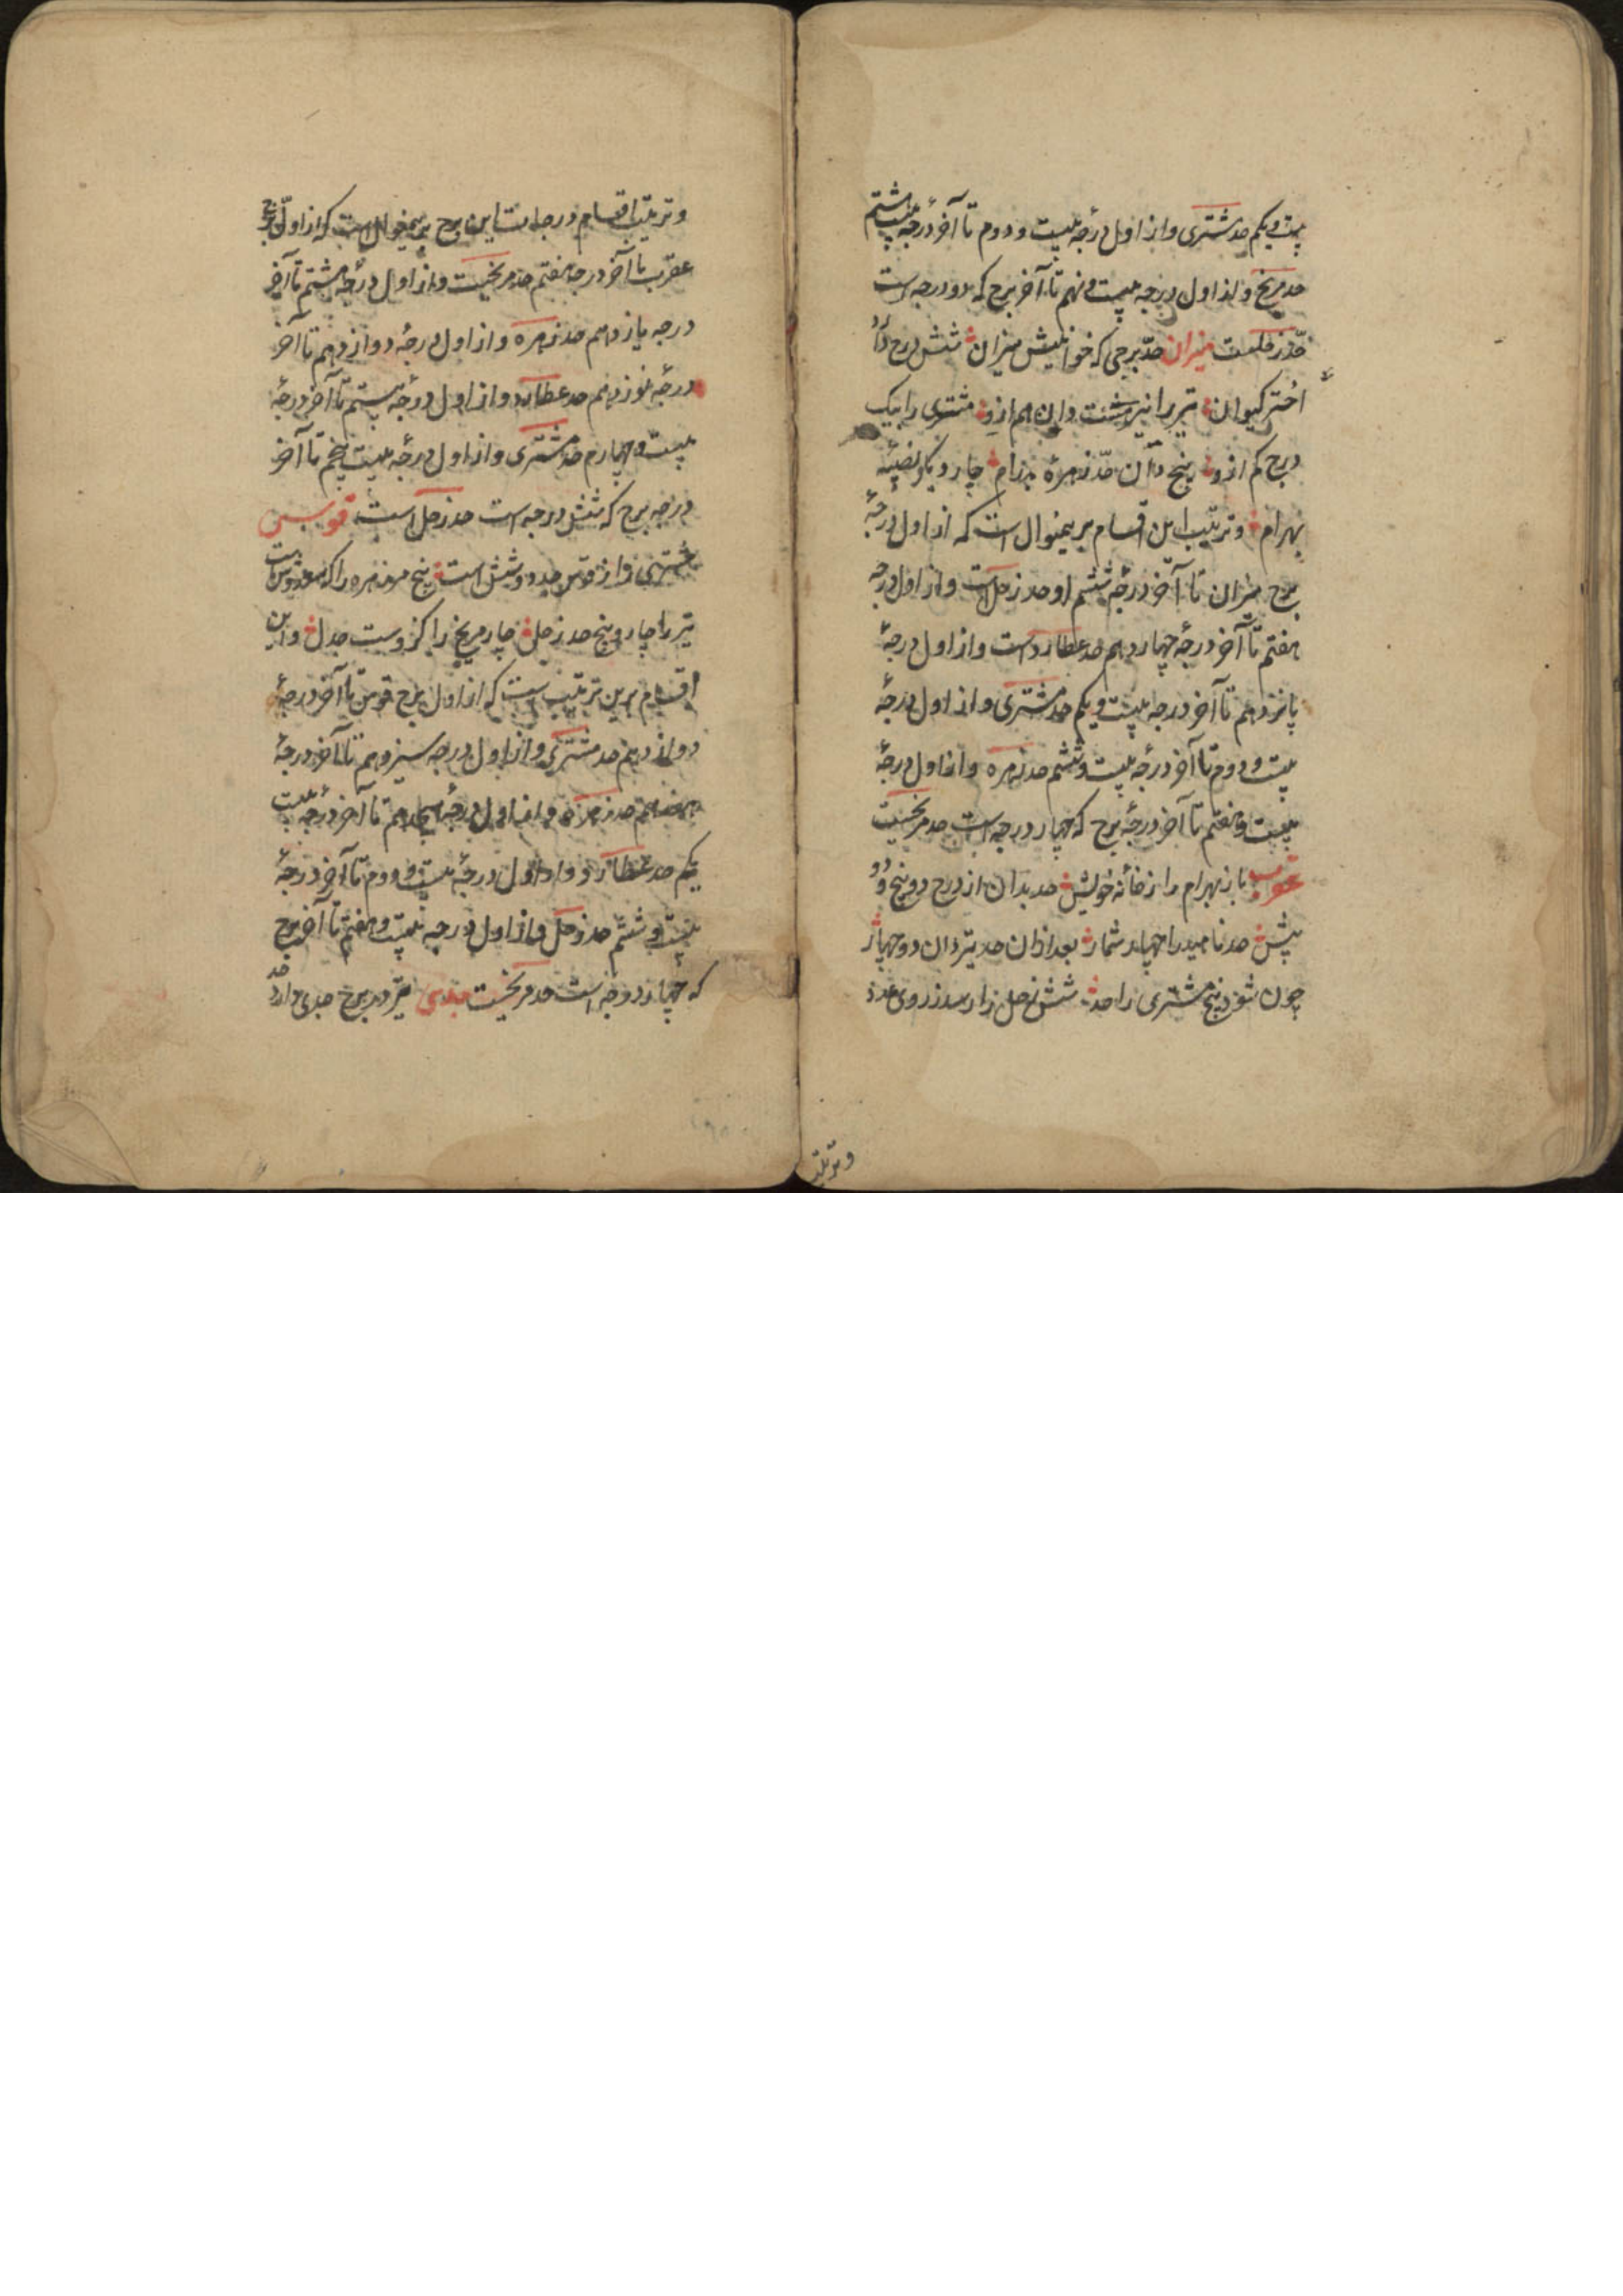 بیست و یکم حد مشتری و از اول درجه بیست و دوم تا آخر درجه بیست هشتم
حد مریخ و از اول درجه بیست و نهم تا آخر برج که دو درجه است
حدّ زحلست میزان حدّ برجی که خوانیش میزان شش درج دان
اختر کیوان تیر را نیز هشت دان هم ازو مشتری را بیک
درج کم ازو پنج دان حدّ زهره چار دیگر نصیبه
بهرام و ترتیب این اقسام برینمنوال است که از اول درجهٔ
برج میزان تا آخر درجهٔ ششم او حد زحل است و از اول درجه
هفتم تا آخر درجهٔ چهاردهم حد عطارد است و از اول درجهٔ
پانزدهم تا آخر درجه بیست و یکم حد مشتری و از اول درجهٔ
بیست و دوم تا آخر درجهٔ بیست و ششم حد زهره و از اول درجهٔ
بیست و هفتم تا آخر درجهٔ برج که چهار درجه است حد مریخست
عقرب باز بهرام را ز خانهٔ خویش حد بدان از درج دو پنج و دو
بیش حد ناهید را چهار شمار بعد ازان حد تیر دان دو چهار
چون شود پنج مشتری را حد شش زحل را رسد ز روی عدد
و ترتیب
و ترتیب اقسام درجات این برج برینمنوال است که از اول برج
عقرب تا آخر درجه هفتم حد مریخست و از اول درجهٔ هشتم تا آخر
درجه یازدهم حد زهره و از اول درجهٔ دوازدهم تا آخر
درجهٔ نوزدهم حد عطارد و از اول درجهٔ بیستم تا آخر درجهٔ
بیست و چهارم حد مشتری و از اول درجهٔ بیست پنجم تا آخر
درجه برج که شش درجه است حد زحل است قوس
مشتری را ز قوس حد دو شش است پنج مر زهره را که
تیر را چار و پنج حد زحل چار مریخ را کزوست جدل و این
اقسام برین ترتیب است که از اول برج قوس تا آخر درجهٔ
دوازدهم حد مشتری و از اول درجه سیزدهم تا آخر درجهٔ
هفدهم حد زهره و از اول درجهٔ هیجدهم تا آخر درجه بیست
یکم حد عطارد و از اول درجهٔ بیست و دوم تا آخر درجهٔ
بیست و ششم حد زحل و از اول درجه بیست و هفتم تا آخر برج
که چهار درجه است حد مریخست جدی تیر در برج جدی دارد حد